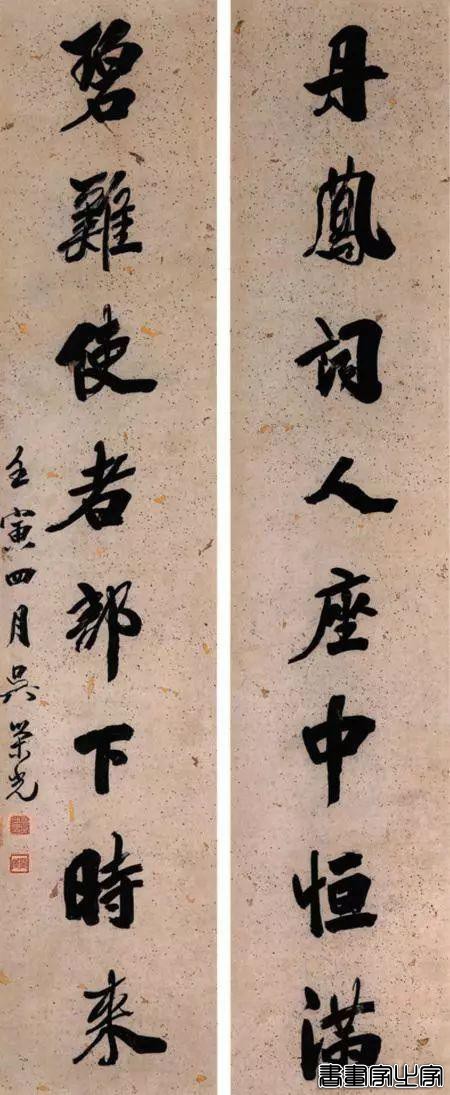 丹鳳詞人座中恒滿
碧雞使者部下時來
壬寅四月吳榮光
書畫家之家